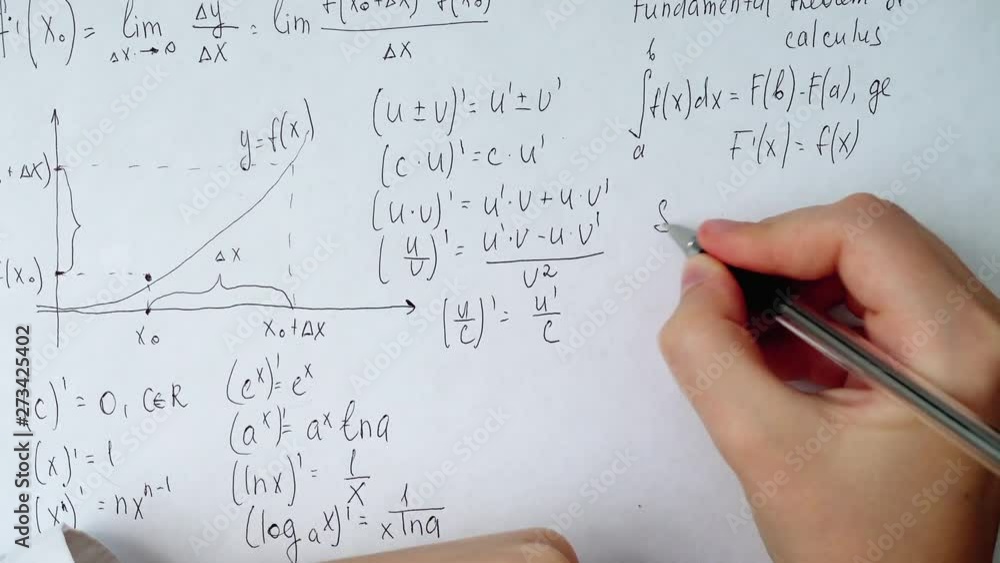 f'(x₀) = lim Δx→0 Δy/Δx = lim f(x₀+Δx) f(x₀)/Δx
fundamental theorem of
calculus
∫ₐᵇ f(x)dx = F(b) - F(a), ge
F'(x) = f(x)
y = f(x)
+ Δx)
f(x₀)
Δx
x₀
x₀+Δx
(u ± v)' = u' ± v'
(c · u)' = c · u'
(u · v)' = u' · v + u · v'
(u/v)' = (u' · v - u · v')/v²
(u/c)' = u'/c
c)' = 0, c∈R
(x)' = 1
(xⁿ)' = nxⁿ⁻¹
(eˣ)' = eˣ
(aˣ)' = aˣ lna
(lnx)' = 1/x
(logₐx)' = 1/(x lna)
Adobe Stock | #273425402
Adobe Stock